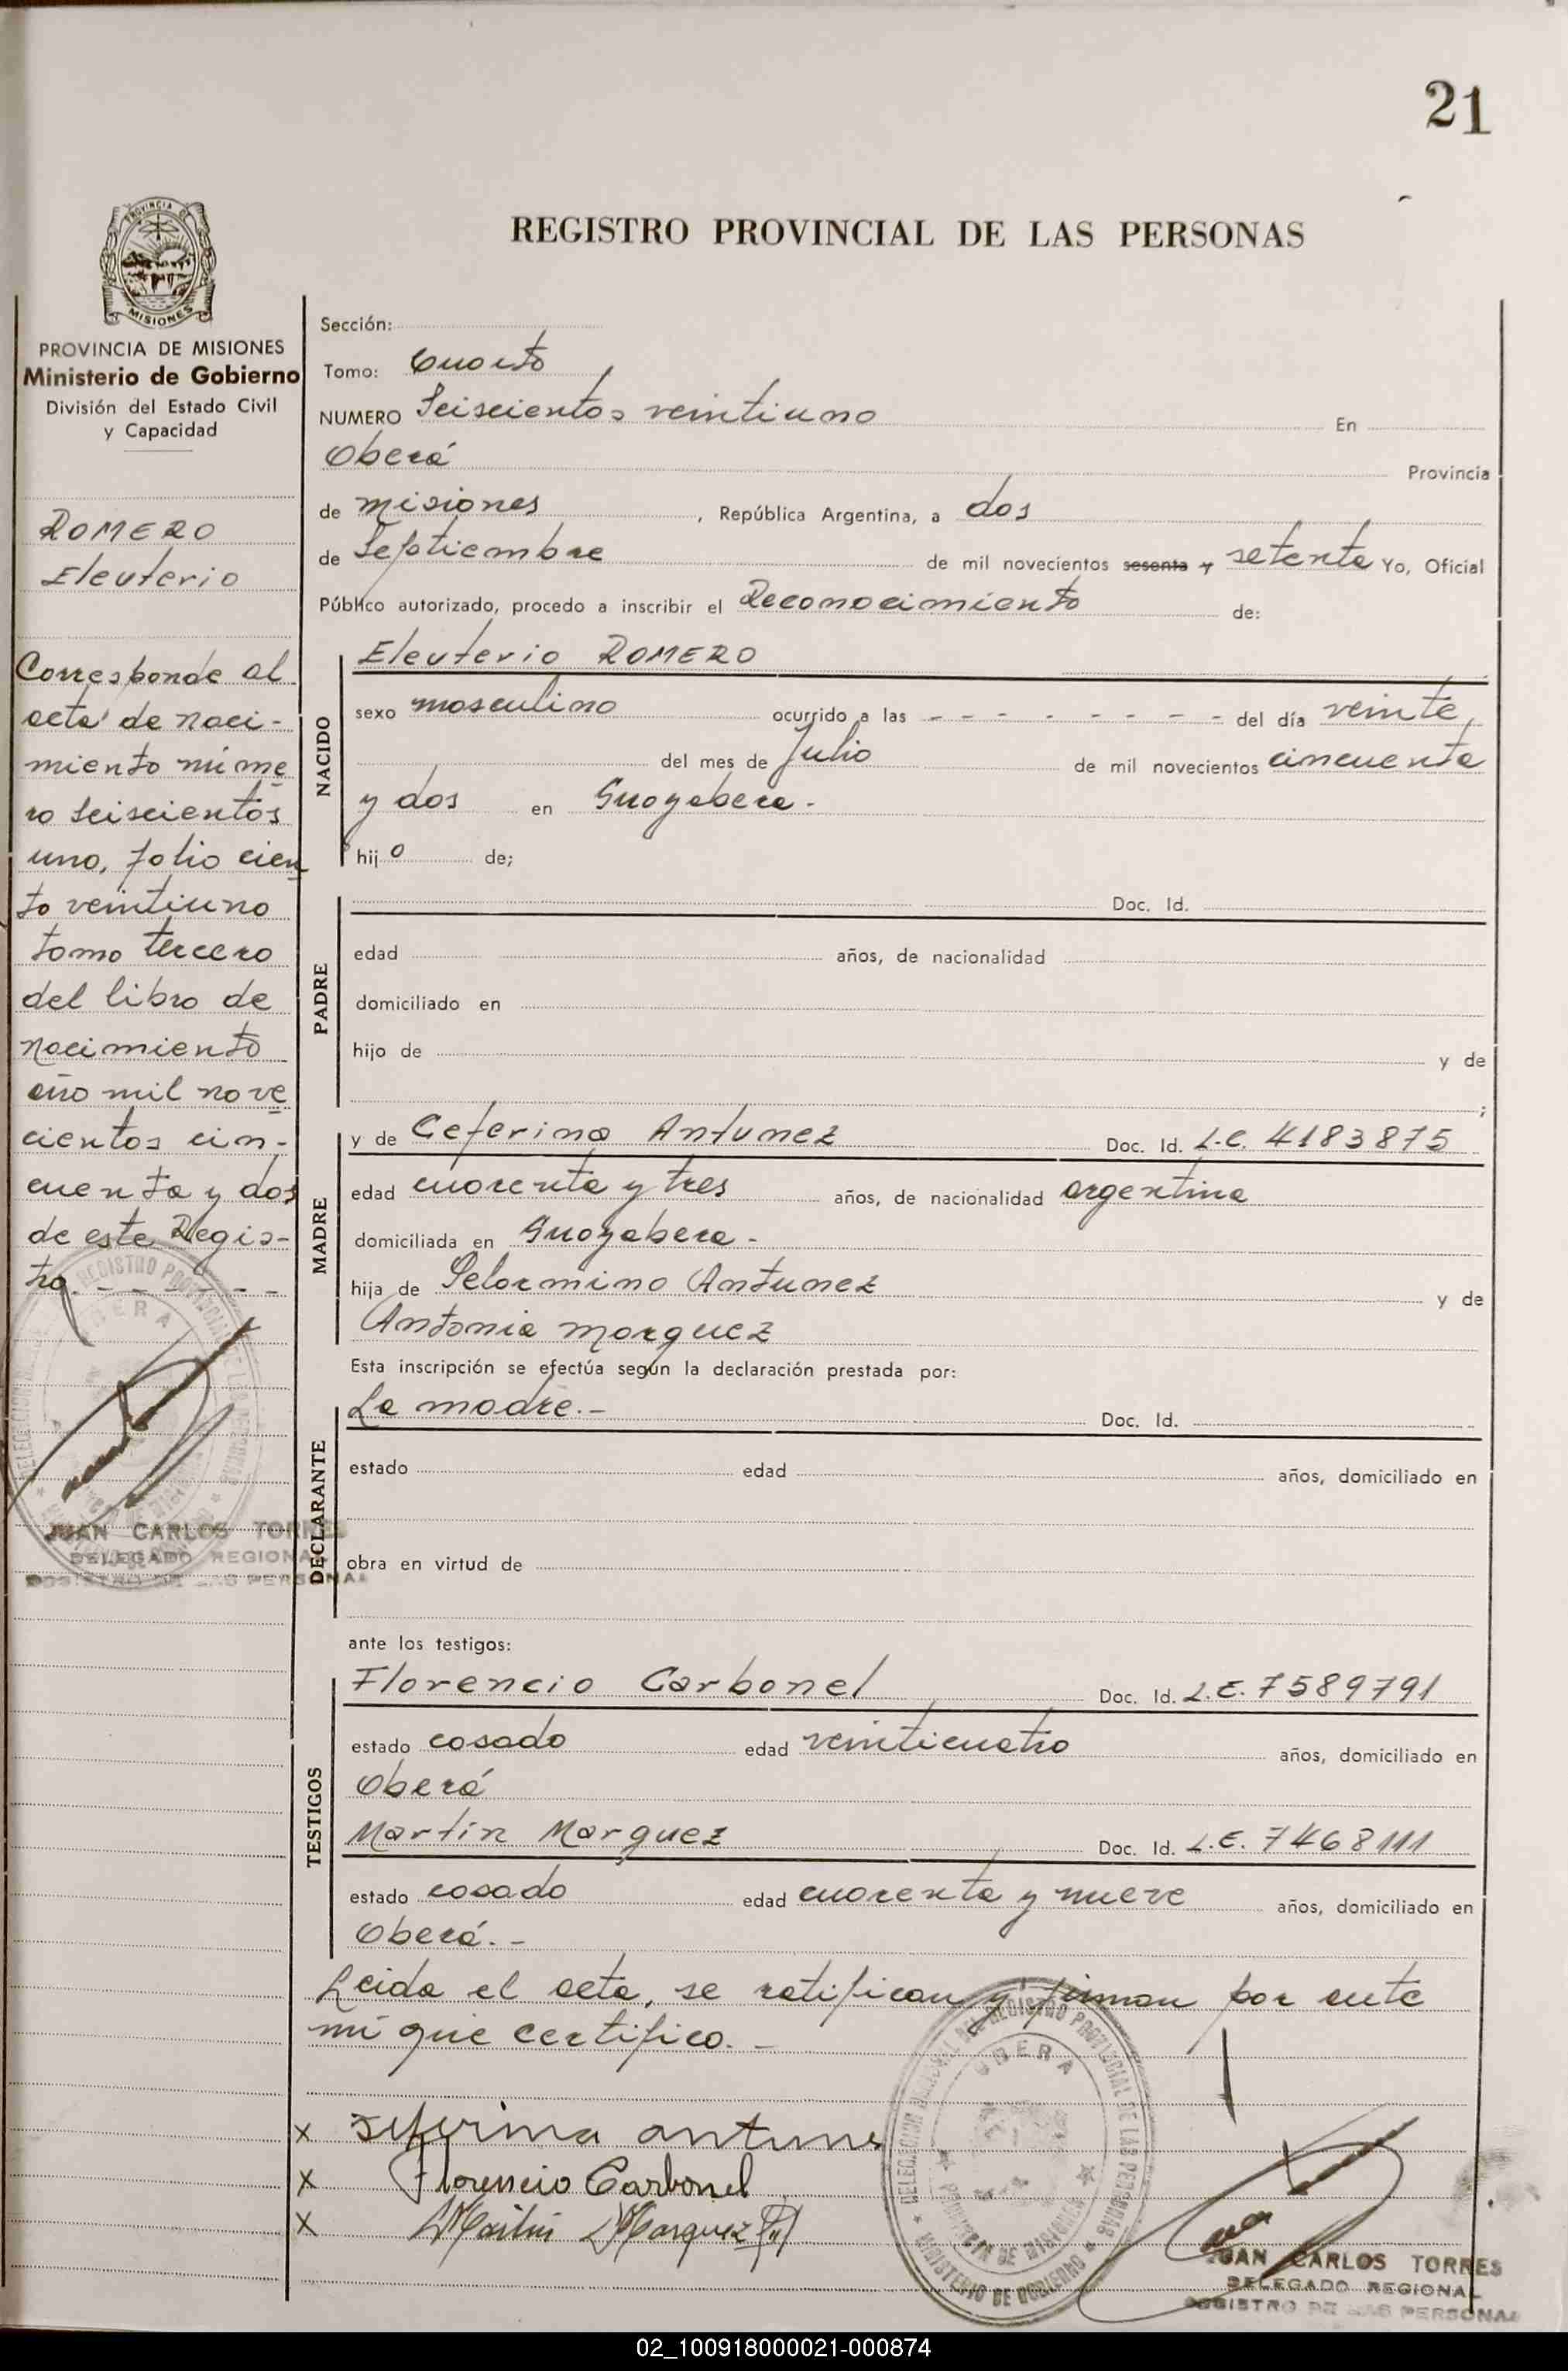 21
REGISTRO PROVINCIAL DE LAS PERSONAS
PROVINCIA DE
MISIONES
PROVINCIA DE MISIONES
Ministerio de Gobierno
División del Estado Civil
y Capacidad
ROMERO
Eleuterio
Corresponde al
acta de naci-
miento núme
ro seiscientos
uno, folio cien
to veintiuno
tomo tercero
del libro de
nacimiento
año mil nove
cientos cin-
cuenta y dos
de este Regis-
tro. - - - - -
JUAN CARLOS TORRES
DELEGADO REGIONAL
REGISTRO DE LAS PERSONAS
Sección:
Tomo: Cuarto
NUMERO Seiscientos veintiuno En
Oberá Provincia
de Misiones, República Argentina, a dos
de Septiembre de mil novecientos sesenta y setenta Yo, Oficial
Público autorizado, procedo a inscribir el Reconocimiento de:
NACIDO
Eleuterio ROMERO
sexo masculino ocurrido a las - - - - - - - - - del día veinte,
del mes de Julio de mil novecientos cincuenta
y dos en Guayabera.-
hijo de;
PADRE
Doc. Id.
edad años, de nacionalidad
domiciliado en
hijo de y de
;
MADRE
y de Ceferina Antunez Doc. Id. L.C. 4183875
edad cuarenta y tres años, de nacionalidad argentina
domiciliada en Guayabera.-
hija de Selarmino Antunez y de
Antonia Marquez
Esta inscripción se efectúa según la declaración prestada por:
DECLARANTE
La madre.- Doc. Id.
estado edad años, domiciliado en
obra en virtud de
ante los testigos:
TESTIGOS
Florencio Carbonel Doc. Id. L.E. 7589791
estado casado edad veinticuatro años, domiciliado en
Oberá
Martín Marquez Doc. Id. L.E. 7468111
estado casado edad cuarenta y nueve años, domiciliado en
Oberá.-
Leida el acta, se ratifican y firman por ante
mí que certifico.-
x seferina antune
x Florencio Carbonel
x Martin Marquez
DELEGACION REGIONAL DEL REGISTRO PROVINCIAL DE LAS PERSONAS
OBERA
PROVINCIA DE MISIONES
MINISTERIO DE GOBIERNO
JUAN CARLOS TORRES
DELEGADO REGIONAL
REGISTRO DE LAS PERSONAS
02_100918000021-000874